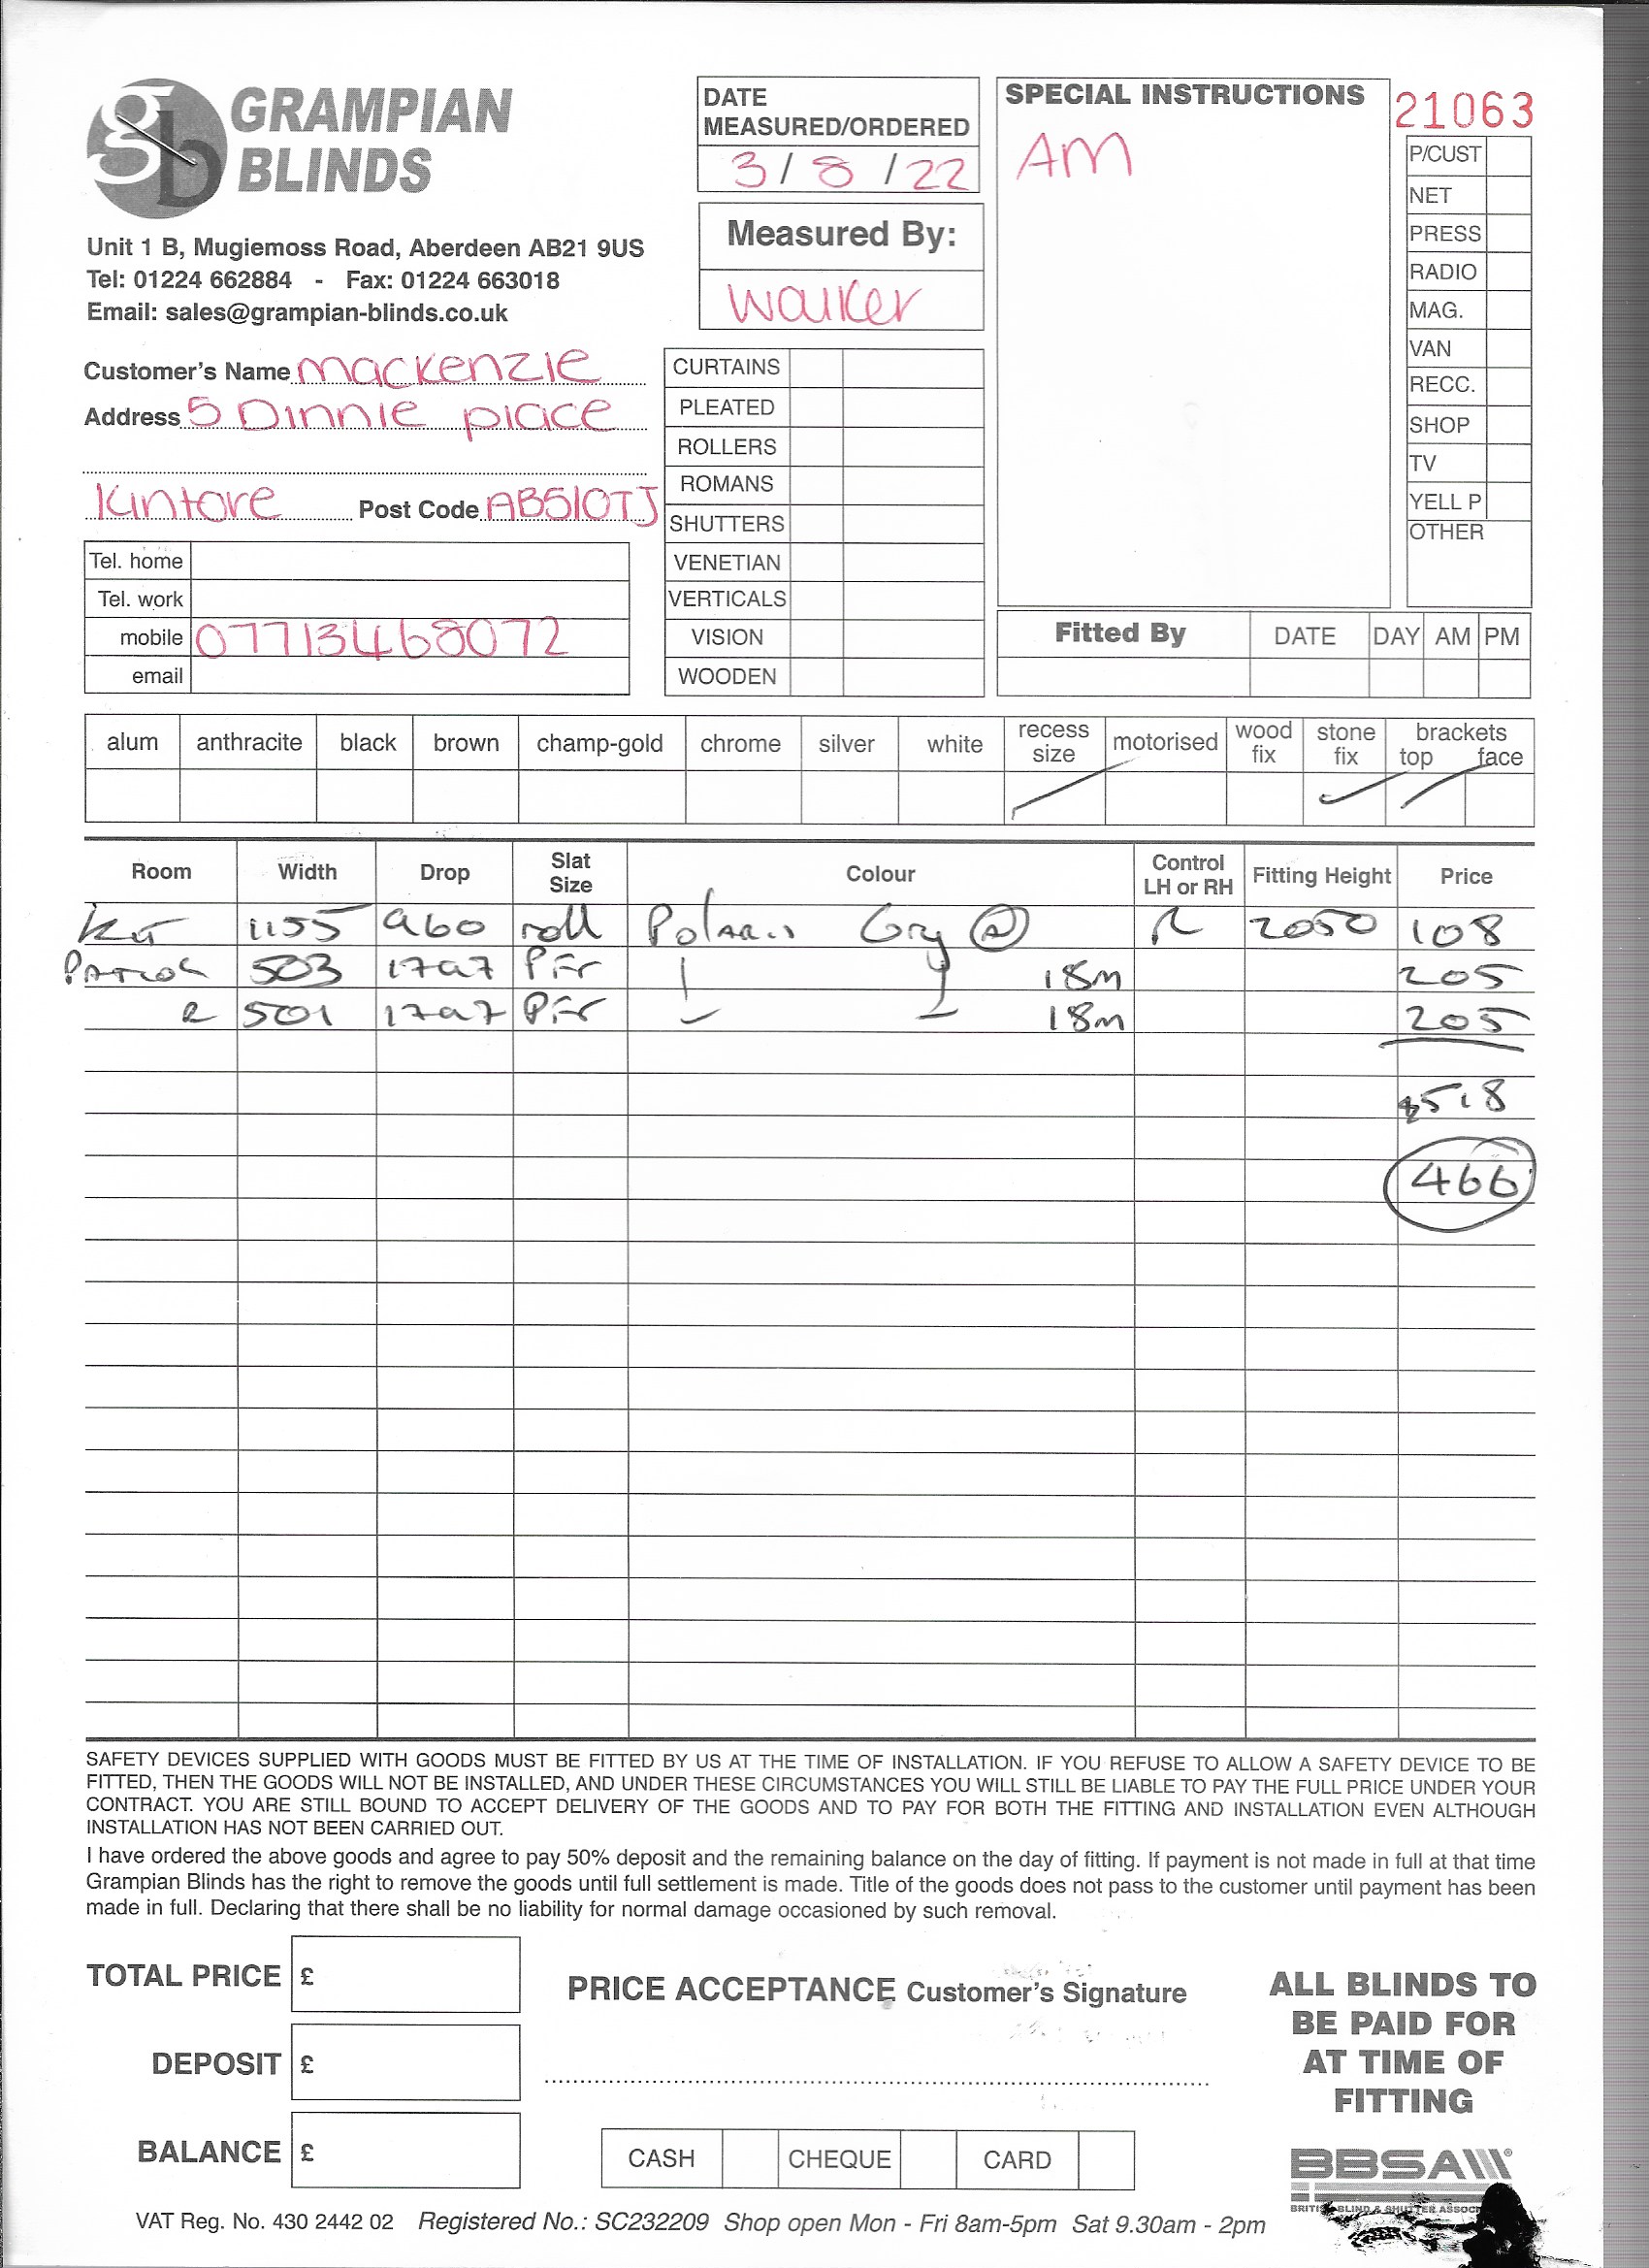 GRAMPIAN
BLINDS
Unit 1 B, Mugiemoss Road, Aberdeen AB21 9US
Tel: 01224 662884 - Fax: 01224 663018
Email: sales@grampian-blinds.co.uk
DATE
MEASURED/ORDERED
3 / 8 / 22
Measured By:
Walker
SPECIAL INSTRUCTIONS
AM
21063
P/CUST
NET
PRESS
RADIO
MAG.
VAN
RECC.
SHOP
TV
YELL P
OTHER
Customer's Name Mackenzie
Address 5 Dinnie place
Kintore Post Code AB510TJ
Tel. home
Tel. work
mobile 07713468072
email
CURTAINS
PLEATED
ROLLERS
ROMANS
SHUTTERS
VENETIAN
VERTICALS
VISION
WOODEN
Fitted By DATE DAY AM PM
alum anthracite black brown champ-gold chrome silver white recess size motorised wood fix stone fix brackets top face
Room Width Drop Slat Size Colour Control LH or RH Fitting Height Price
Kit 1155 960 roll Polaris Gry R 2050 108
503 1797 PFr 18m 205
R 501 1797 PFr 18m 205
518
466
SAFETY DEVICES SUPPLIED WITH GOODS MUST BE FITTED BY US AT THE TIME OF INSTALLATION. IF YOU REFUSE TO ALLOW A SAFETY DEVICE TO BE
FITTED, THEN THE GOODS WILL NOT BE INSTALLED, AND UNDER THESE CIRCUMSTANCES YOU WILL STILL BE LIABLE TO PAY THE FULL PRICE UNDER YOUR
CONTRACT. YOU ARE STILL BOUND TO ACCEPT DELIVERY OF THE GOODS AND TO PAY FOR BOTH THE FITTING AND INSTALLATION EVEN ALTHOUGH
INSTALLATION HAS NOT BEEN CARRIED OUT.
I have ordered the above goods and agree to pay 50% deposit and the remaining balance on the day of fitting. If payment is not made in full at that time
Grampian Blinds has the right to remove the goods until full settlement is made. Title of the goods does not pass to the customer until payment has been
made in full. Declaring that there shall be no liability for normal damage occasioned by such removal.
TOTAL PRICE £
DEPOSIT £
BALANCE £
PRICE ACCEPTANCE Customer's Signature
CASH CHEQUE CARD
ALL BLINDS TO
BE PAID FOR
AT TIME OF
FITTING
BBSA
BRITISH BLIND & SHUTTER
VAT Reg. No. 430 2442 02 Registered No.: SC232209 Shop open Mon - Fri 8am-5pm Sat 9.30am - 2pm